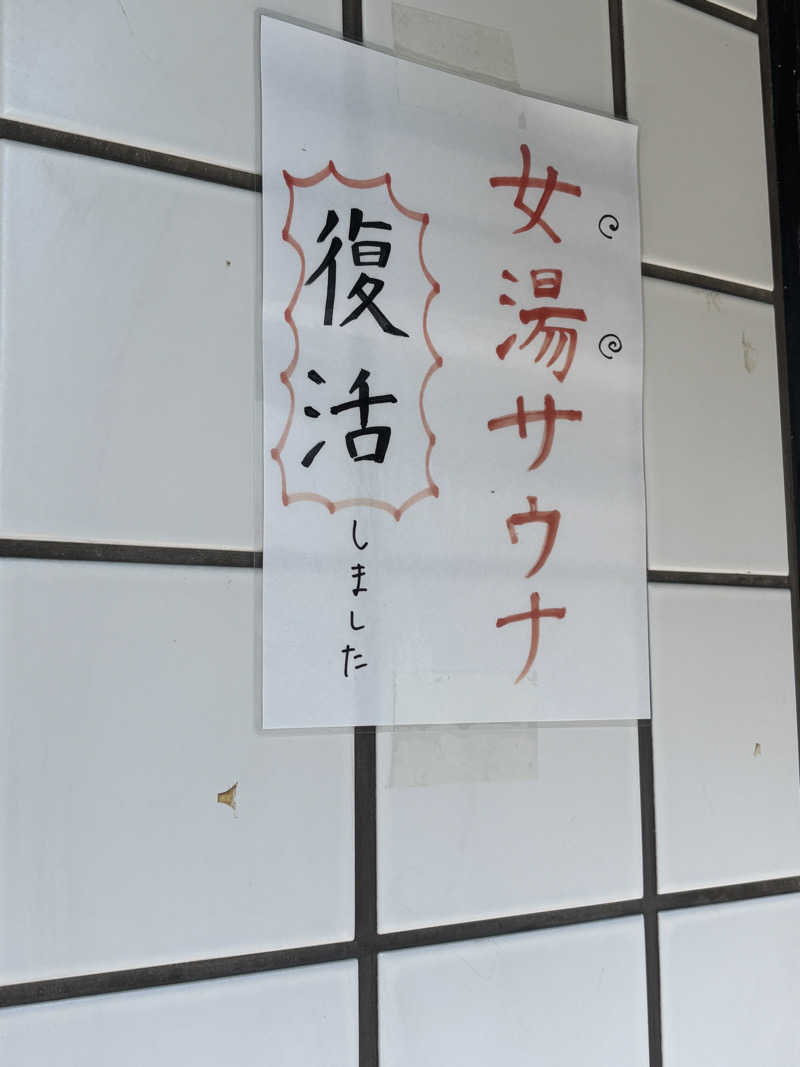 女湯サウナ
復活しました